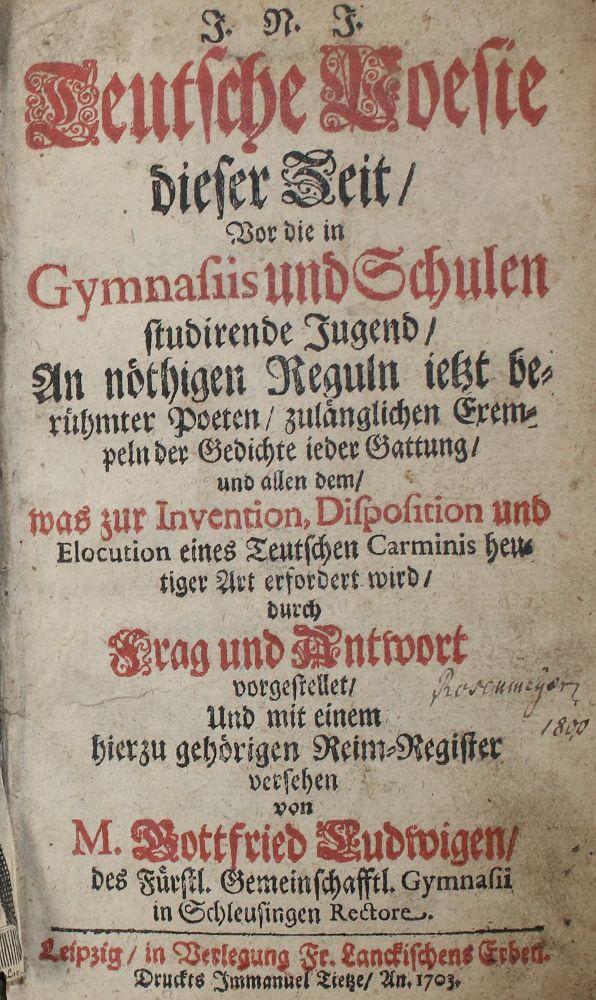 J. N. J.
Teutsche Poesie
dieser Zeit/
Vor die in
Gymnasiis und Schulen
studirende Jugend/
An nöthigen Reguln ietzt be-
rühmter Poeten/ zulänglichen Exem-
peln der Gedichte ieder Gattung/
und allen dem/
was zur Invention, Disposition und
Elocution eines Teutschen Carminis heu-
tiger Art erfordert wird/
durch
Frag und Antwort
vorgestellet/
Rosenmeyer
Und mit einem
1800
hierzu gehörigen Reim-Register
versehen
von
M. Gottfried Ludwigen/
des Fürstl. Gemeinschafftl. Gymnasii
in Schleusingen Rectore.
Leipzig/ in Verlegung Fr. Lanckischens Erben.
Druckts Immanuel Tietze/ An. 1703.